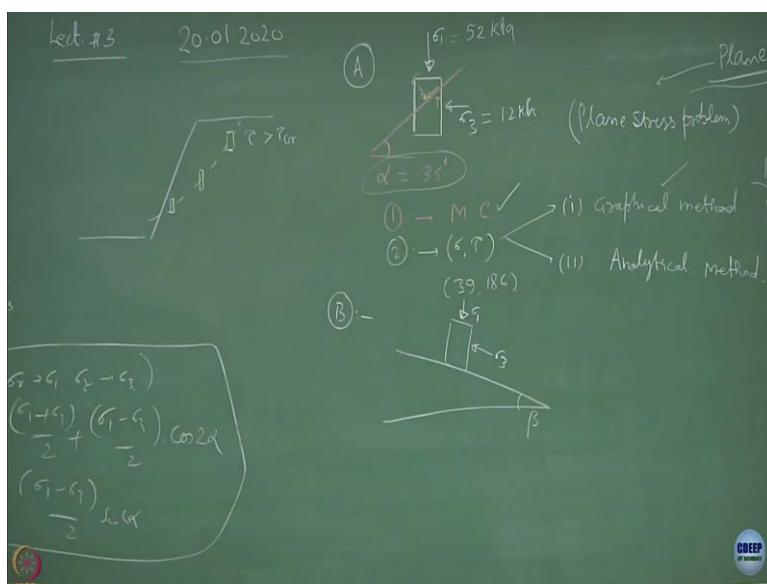 Lect. #3 20.01.2020.
A
σ1 = 52 kPa
σ3 = 12 kPa.
τ > τcr
α = 35°
Plane
(Plane stress problem)
① → M C ✓
② → (σ, τ)
(i) Graphical method
(ii) Analytical Method.
(39, 18.6)
B . –
σ1
σ3
β
s.
σx → σ1 σz → σ3)
(σ1+σ3)/2 + (σ1-σ3)/2 . cos2α
(σ1-σ3)/2 sin2α
CDEEP
IIT BOMBAY